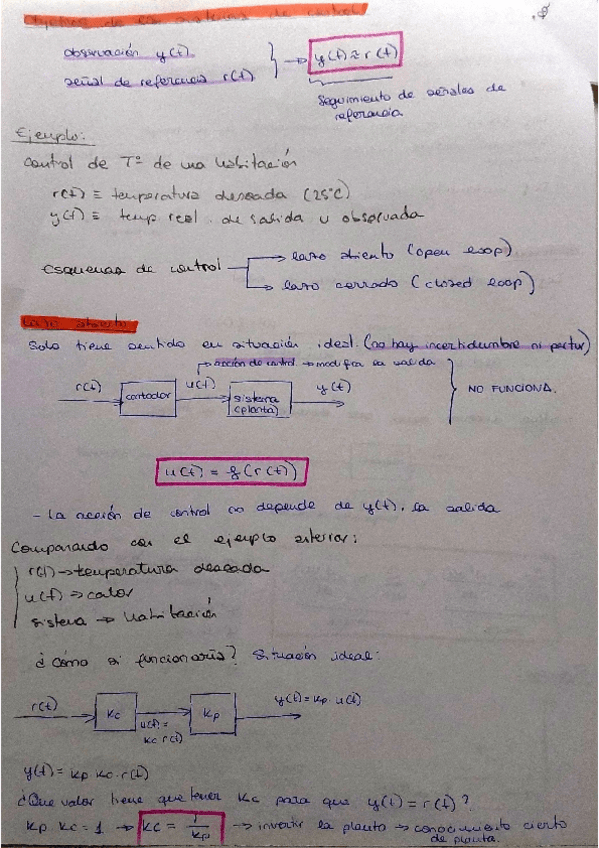 Objetivo de los sistemas de control
observación y(t)
señal de referencia r(t)
→ y(t) ≈ r(t)
Seguimiento de señales de
referencia
Ejemplo:
Control de Tº de una habitación
r(t) ≡ temperatura deseada (25ºC)
y(t) ≡ temp real. de salida u observada
Esquemas de control
→ lazo abierto (open loop)
→ lazo cerrado (closed loop)
Lazo abierto
Solo tiene sentido en situación ideal. (no hay incertidumbre ni pertur)
→ acción de control → modifica la salida
r(t) u(t) y(t)
contador
sistema
(planta)
NO FUNCIONA.
u(t) = f(r(t))
- La acción de control no depende de y(t), la salida
Comparando con el ejemplo anterior:
r(t) → temperatura deseada
u(t) → calor
sistema → habitación
¿Cómo sí funcionaría? Situación ideal:
r(t) y(t) = kp · u(t)
kc kp
u(t) =
kc r(t)
y(t) = kp kc · r(t)
¿Que valor tiene que tener kc para que y(t) = r(t)?
kp kc = 1 → kc = 1/kp → invertir la planta → conocimiento cierto
de planta.